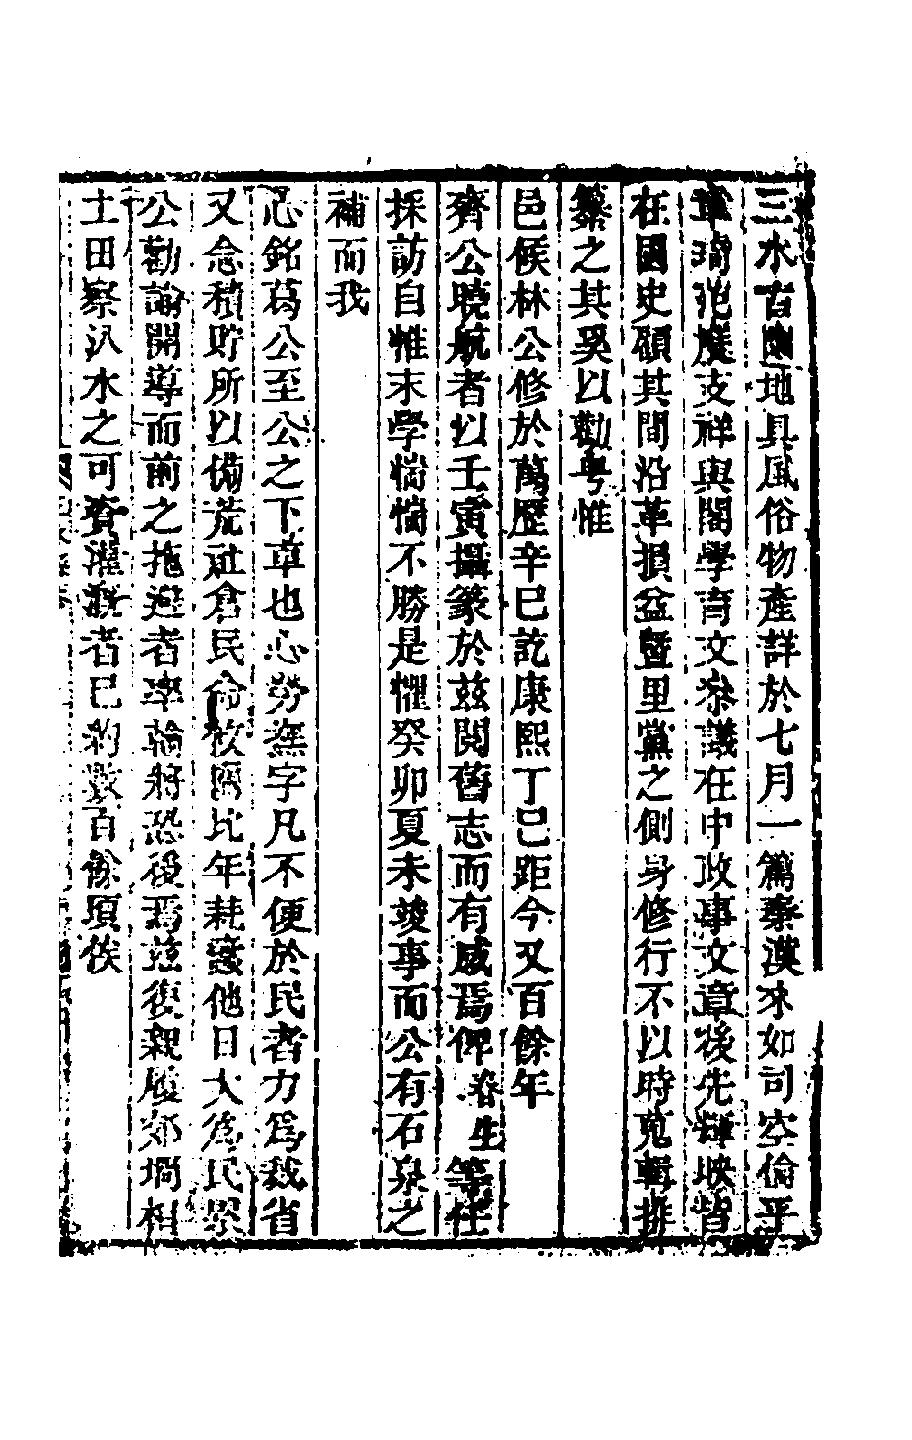 三水古豳地具風俗物產詳於七月一篇秦漢來如司空倫平
章琦記應支祥與閣學育文叅議在中政事文章後先輝映皆
在國史碩其間沿革損益暨里黨之側身修行不以時蒐輯排
纂之其奚以勸粤惟
邑候林公修於萬歷辛巳訖康熙丁巳距今又百餘年
齊公曉航者以壬寅攝篆於兹閱舊志而有感焉俾春生等任
採訪自惟末學惴惴不勝是懼癸卯夏未竣事而公有石泉之
補而我
心銘葛公至公之下車也心勞撫字凡不便於民者力為裁省
又念積貯所以備荒社倉民命攸關比年耗蠹他日大為民累
公勸諭開導而前之拖逋者率輸將恐後焉兹復親履郊坰相
土田察汃水之可資灌溉者已約數百餘項俟